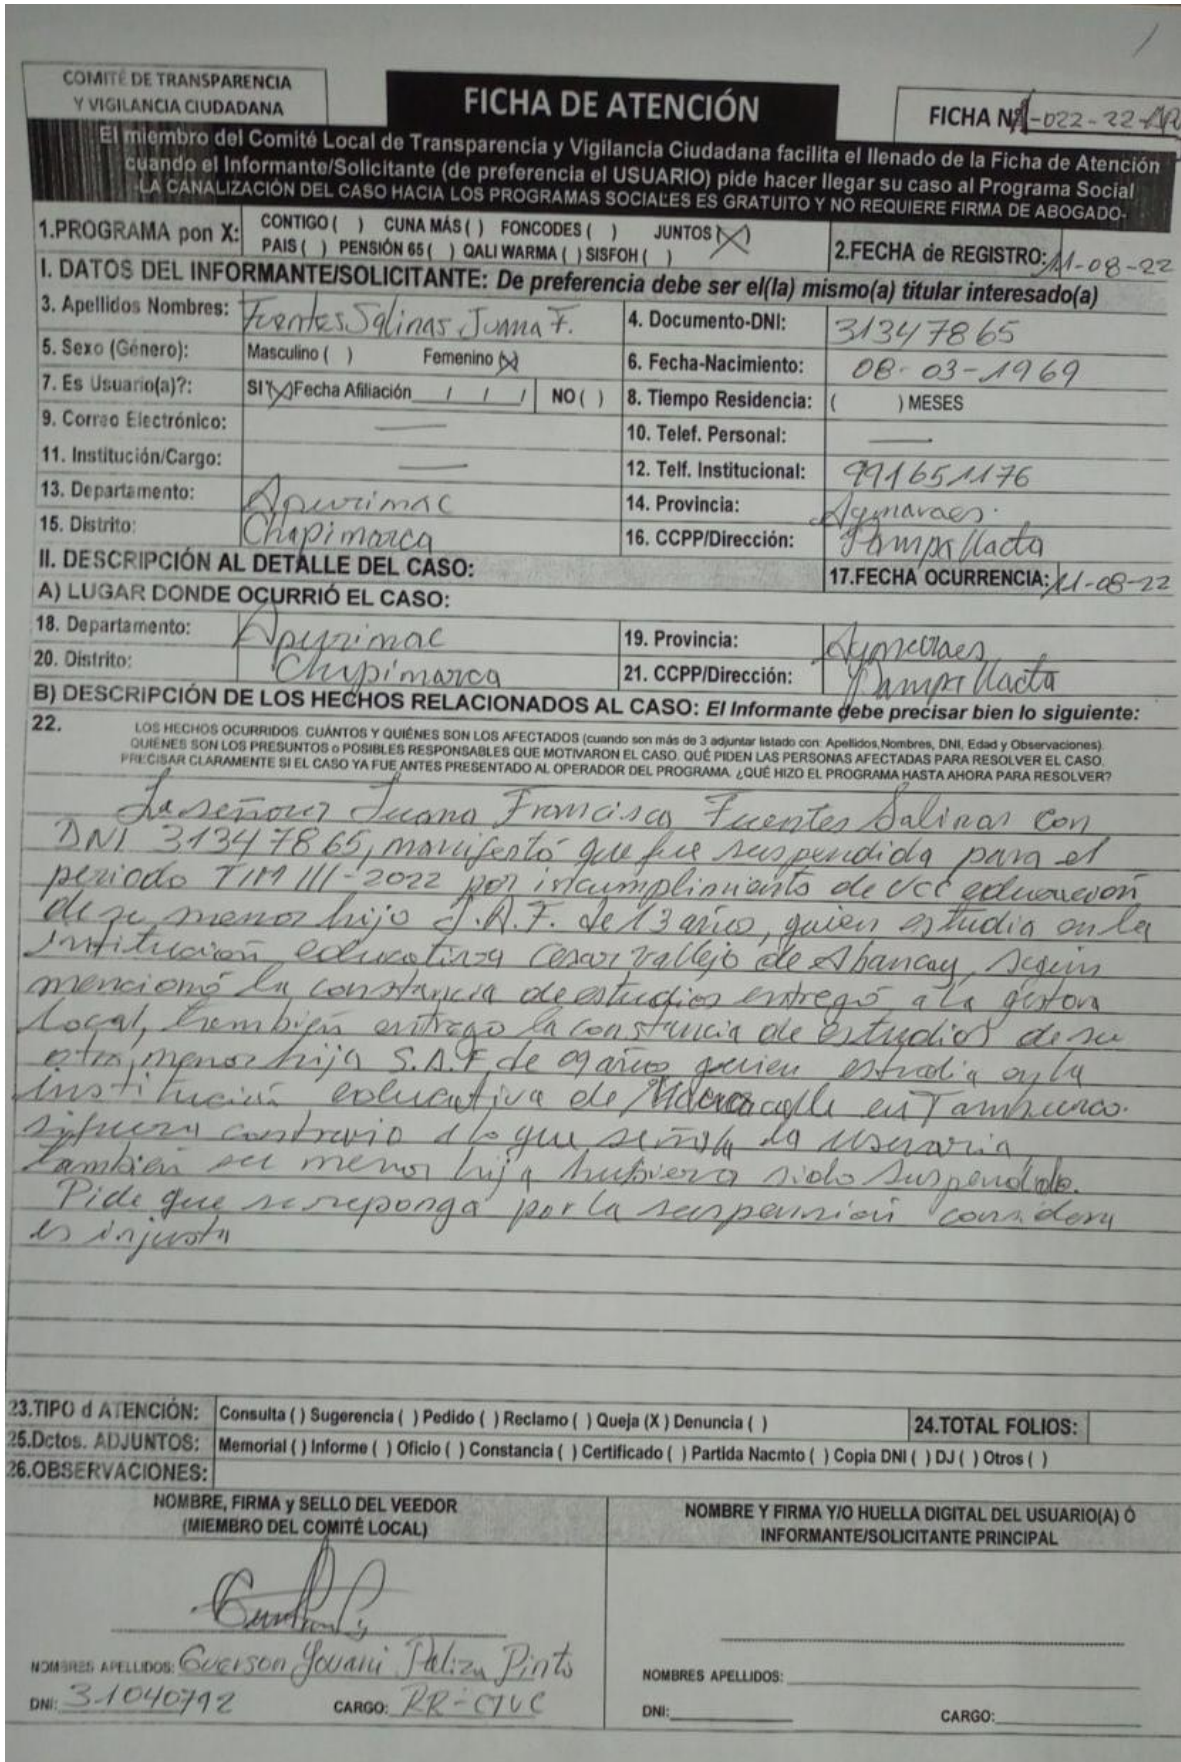 1
COMITÉ DE TRANSPARENCIA
Y VIGILANCIA CIUDADANA
FICHA DE ATENCIÓN
FICHA Nº -022-22-AP
El miembro del Comité Local de Transparencia y Vigilancia Ciudadana facilita el llenado de la Ficha de Atención
cuando el Informante/Solicitante (de preferencia el USUARIO) pide hacer llegar su caso al Programa Social
-LA CANALIZACIÓN DEL CASO HACIA LOS PROGRAMAS SOCIALES ES GRATUITO Y NO REQUIERE FIRMA DE ABOGADO-
1.PROGRAMA pon X: CONTIGO ( ) CUNA MÁS ( ) FONCODES ( ) JUNTOS (X)
PAIS ( ) PENSIÓN 65 ( ) QALI WARMA ( ) SISFOH ( )
2.FECHA de REGISTRO: 11-08-22
I. DATOS DEL INFORMANTE/SOLICITANTE: De preferencia debe ser el(la) mismo(a) titular interesado(a)
3. Apellidos Nombres: Fuentes Salinas Juana F. 4. Documento-DNI: 31347865
5. Sexo (Género): Masculino ( ) Femenino (X) 6. Fecha-Nacimiento: 08-03-1969
7. Es Usuario(a)?: SI (X) Fecha Afiliación / / / NO ( ) 8. Tiempo Residencia: ( ) MESES
9. Correo Electrónico: — 10. Telef. Personal: —
11. Institución/Cargo: — 12. Telf. Institucional: 991651176
13. Departamento: Apurimac 14. Provincia: Aymaraes.
15. Distrito: Chapimarca 16. CCPP/Dirección: Pampallacta
II. DESCRIPCIÓN AL DETALLE DEL CASO: 17.FECHA OCURRENCIA: 11-08-22
A) LUGAR DONDE OCURRIÓ EL CASO:
18. Departamento: Apurimac 19. Provincia: Aymaraes
20. Distrito: Chapimarca 21. CCPP/Dirección: Pampallacta
B) DESCRIPCIÓN DE LOS HECHOS RELACIONADOS AL CASO: El Informante debe precisar bien lo siguiente:
22. LOS HECHOS OCURRIDOS. CUÁNTOS Y QUIÉNES SON LOS AFECTADOS (cuando son más de 3 adjuntar listado con: Apellidos,Nombres, DNI, Edad y Observaciones).
QUIÉNES SON LOS PRESUNTOS o POSIBLES RESPONSABLES QUE MOTIVARON EL CASO. QUÉ PIDEN LAS PERSONAS AFECTADAS PARA RESOLVER EL CASO.
PRECISAR CLARAMENTE SI EL CASO YA FUE ANTES PRESENTADO AL OPERADOR DEL PROGRAMA. ¿QUÉ HIZO EL PROGRAMA HASTA AHORA PARA RESOLVER?
La señora Juana Francisca Fuentes Salinas con
DNI 31347865, manifestó que fue suspendida para el
periodo TIM III-2022 por incumplimiento de VCC educación
de su menor hijo J.A.F. de 13 años, quien estudia en la
institución educativa Cesar Vallejo de Abancay, según
mencionó la constancia de estudios entregó a la gestora
Local, también entrego la constancia de estudios de su
otra menor hija S.A.F de 09 años quien estudia en la
institución educativa de en Tamburco.
si fuera contrario a lo que señala la usuaria,
también su menor hija hubiera sido suspendida.
Pide que se reponga por la suspensión considera
es injusta
23.TIPO d ATENCIÓN: Consulta ( ) Sugerencia ( ) Pedido ( ) Reclamo ( ) Queja (X ) Denuncia ( ) 24.TOTAL FOLIOS:
25.Dctos. ADJUNTOS: Memorial ( ) Informe ( ) Oficio ( ) Constancia ( ) Certificado ( ) Partida Nacmto ( ) Copia DNI ( ) DJ ( ) Otros ( )
26.OBSERVACIONES:
NOMBRE, FIRMA y SELLO DEL VEEDOR
(MIEMBRO DEL COMITÉ LOCAL)
NOMBRE Y FIRMA Y/O HUELLA DIGITAL DEL USUARIO(A) Ó
INFORMANTE/SOLICITANTE PRINCIPAL
NOMBRES APELLIDOS: Guerson Yovani Paliza Pinto
DNI: 31040792 CARGO: RR-CTVC
NOMBRES APELLIDOS:
DNI: CARGO: